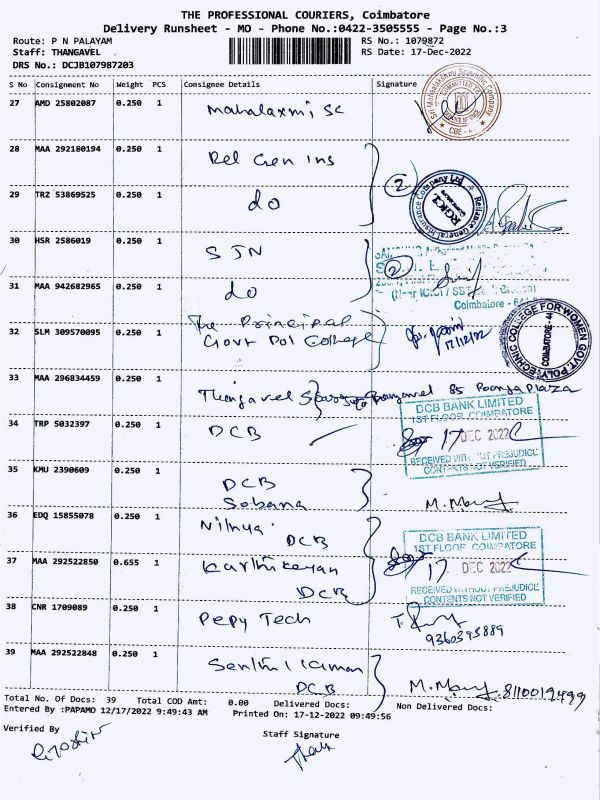 THE PROFESSIONAL COURIERS, Coimbatore
Delivery Runsheet - MO - Phone No.:0422-3505555 - Page No.:3
Route: P N PALAYAM
RS No.: 1079872
Staff: THANGAVEL
RS Date: 17-Dec-2022
DRS No.: DCJB107987203
S No Consignment No Weight PCS Consignee Details Signature
27 AMD 25802087 0.250 1 Mahalaxmi, SC
Sri Mahalakshmi Scientific Company
CBE - 4
28 MAA 292180194 0.250 1 Rel Gen Ins
2
Reliance General Insurance Company Ltd
RGICL
29 TRZ 53869525 0.250 1 do
30 HSR 2586019 0.250 1 SJN
2
31 MAA 942682965 0.250 1 do
(Near ICICI / SBI
Coimbatore - 641
32 SLM 309570095 0.250 1 The Principal
Govt Pol College
17/12/22
POLYTECHNIC COLLEGE FOR WOMEN GOVT.
COIMBATORE-44
33 MAA 296834459 0.250 1 Thangavel 85 Poonga Plaza
34 TRP 5032397 0.250 1 DCB
DCB BANK LIMITED
1ST FLOOR COIMBATORE
17 DEC 2022
RECEIVED WITHOUT PREJUDICE
CONTENTS NOT VERIFIED
35 KMU 2390609 0.250 1 DCB
Sobana
36 EDQ 15855078 0.250 1 Nithya
DCB
DCB BANK LIMITED
1ST FLOOR COIMBATORE
37 MAA 292522850 0.655 1 Karthikeyan
DCB
17 DEC 2022
RECEIVED WITHOUT PREJUDICE
CONTENTS NOT VERIFIED
38 CNR 1709089 0.250 1 Pepy Tech
39 MAA 292522848 0.250 1 Senthil Kumar
DCB
8110019499
Total No. Of Docs: 39 Total COD Amt: 0.00 Delivered Docs: Non Delivered Docs:
Entered By :PAPAMO 12/17/2022 9:49:43 AM Printed On: 17-12-2022 09:49:56
Verified By
Staff Signature